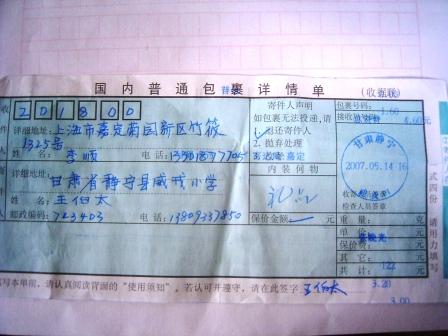 国内普通包裹详情单
(收据联)
201800
寄件人声明
包裹号码:
详细地址:上海市嘉定南园新区竹筱
如包裹无法投递,请
4.60元
1325号
1. 退还寄件人
姓名 李顺 电话:
2. 抛弃处理
嘉定
甘肃静宁
2007.05.14 16
详细地址:
内装何物
甘肃省静宁县威戎小学
礼品
检查人员签章
姓名 王伯太
保价金额 元
重量: 克
邮政编码:723403 电话:13809337850
单价: 元
保价费: 元
其它: 元
共计: 元
填写本单前,请认真阅读背面的“使用须知”。若认可并遵守,请在此签字 王伯太
3.20
3.00
式四份 请用力填写